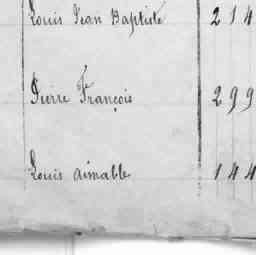 Louis Jean Baptiste 214
Pierre François 299
Louis aimable 144